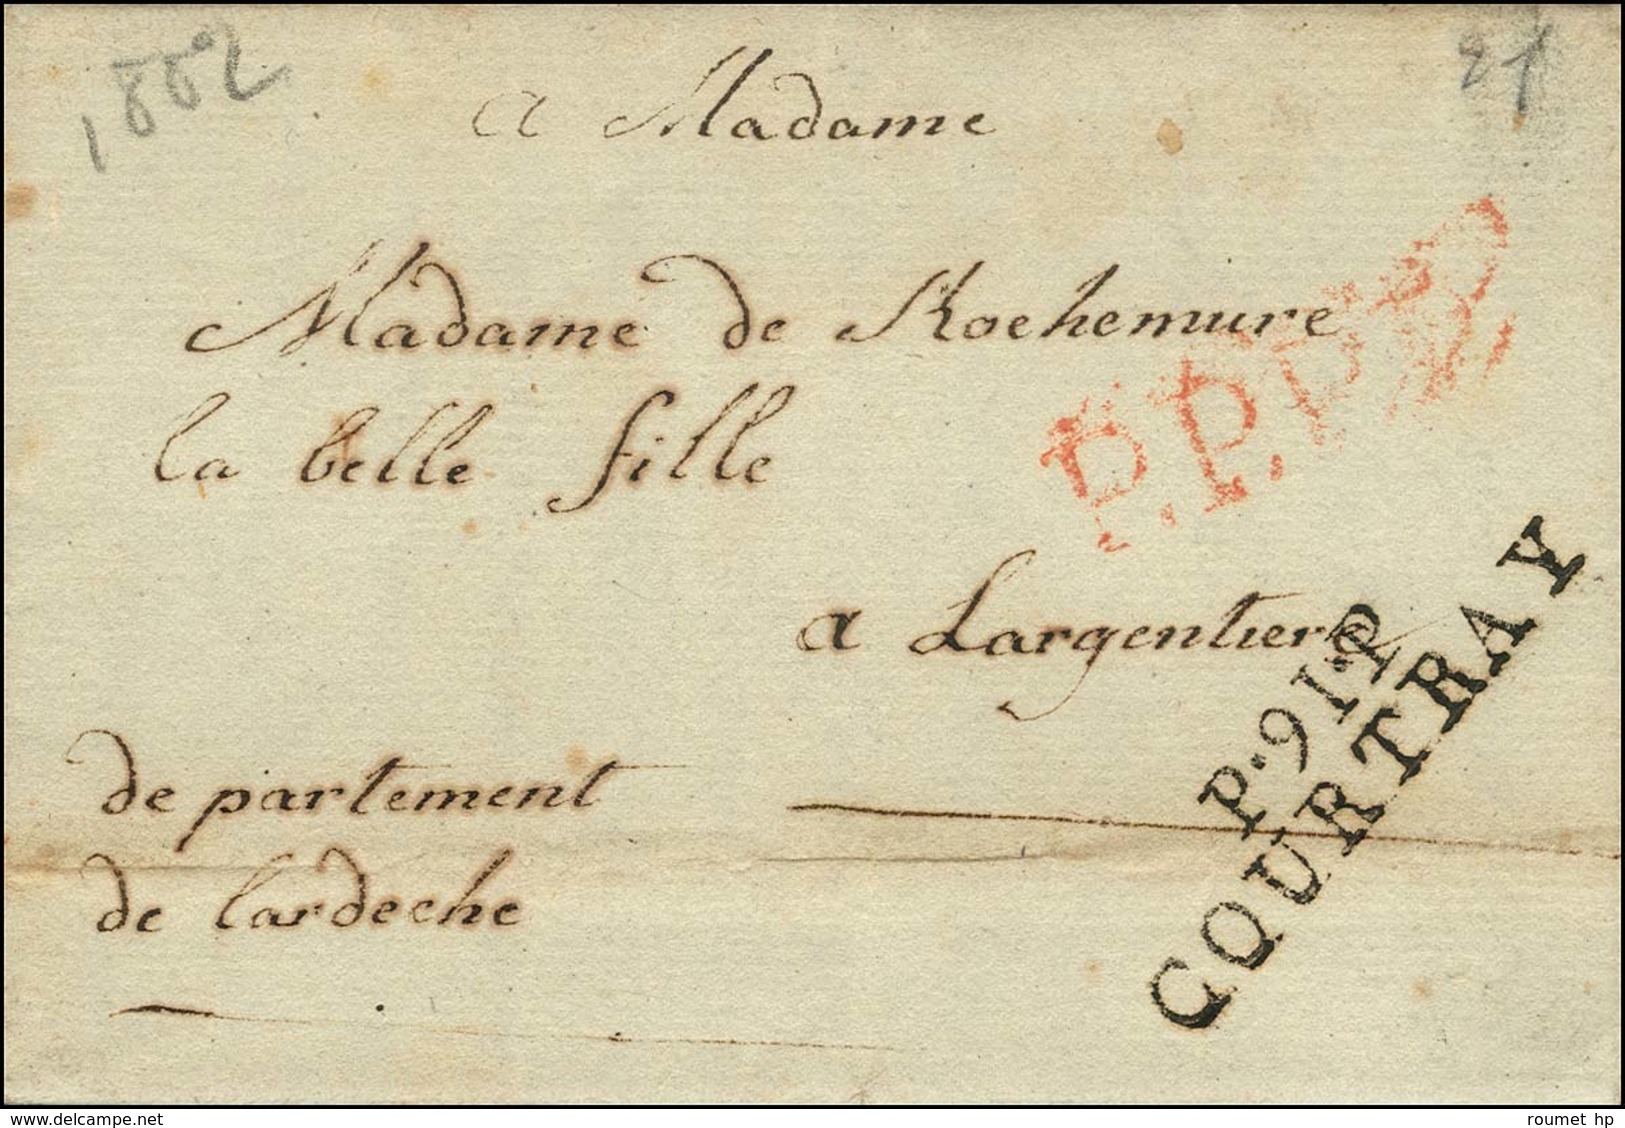 1802
a Madame
Madame de Rochemure
la belle fille
P.P.P.P.
a Largentiere
P.91.P
COURTRAY
de partement
de lardeche
roumet hp